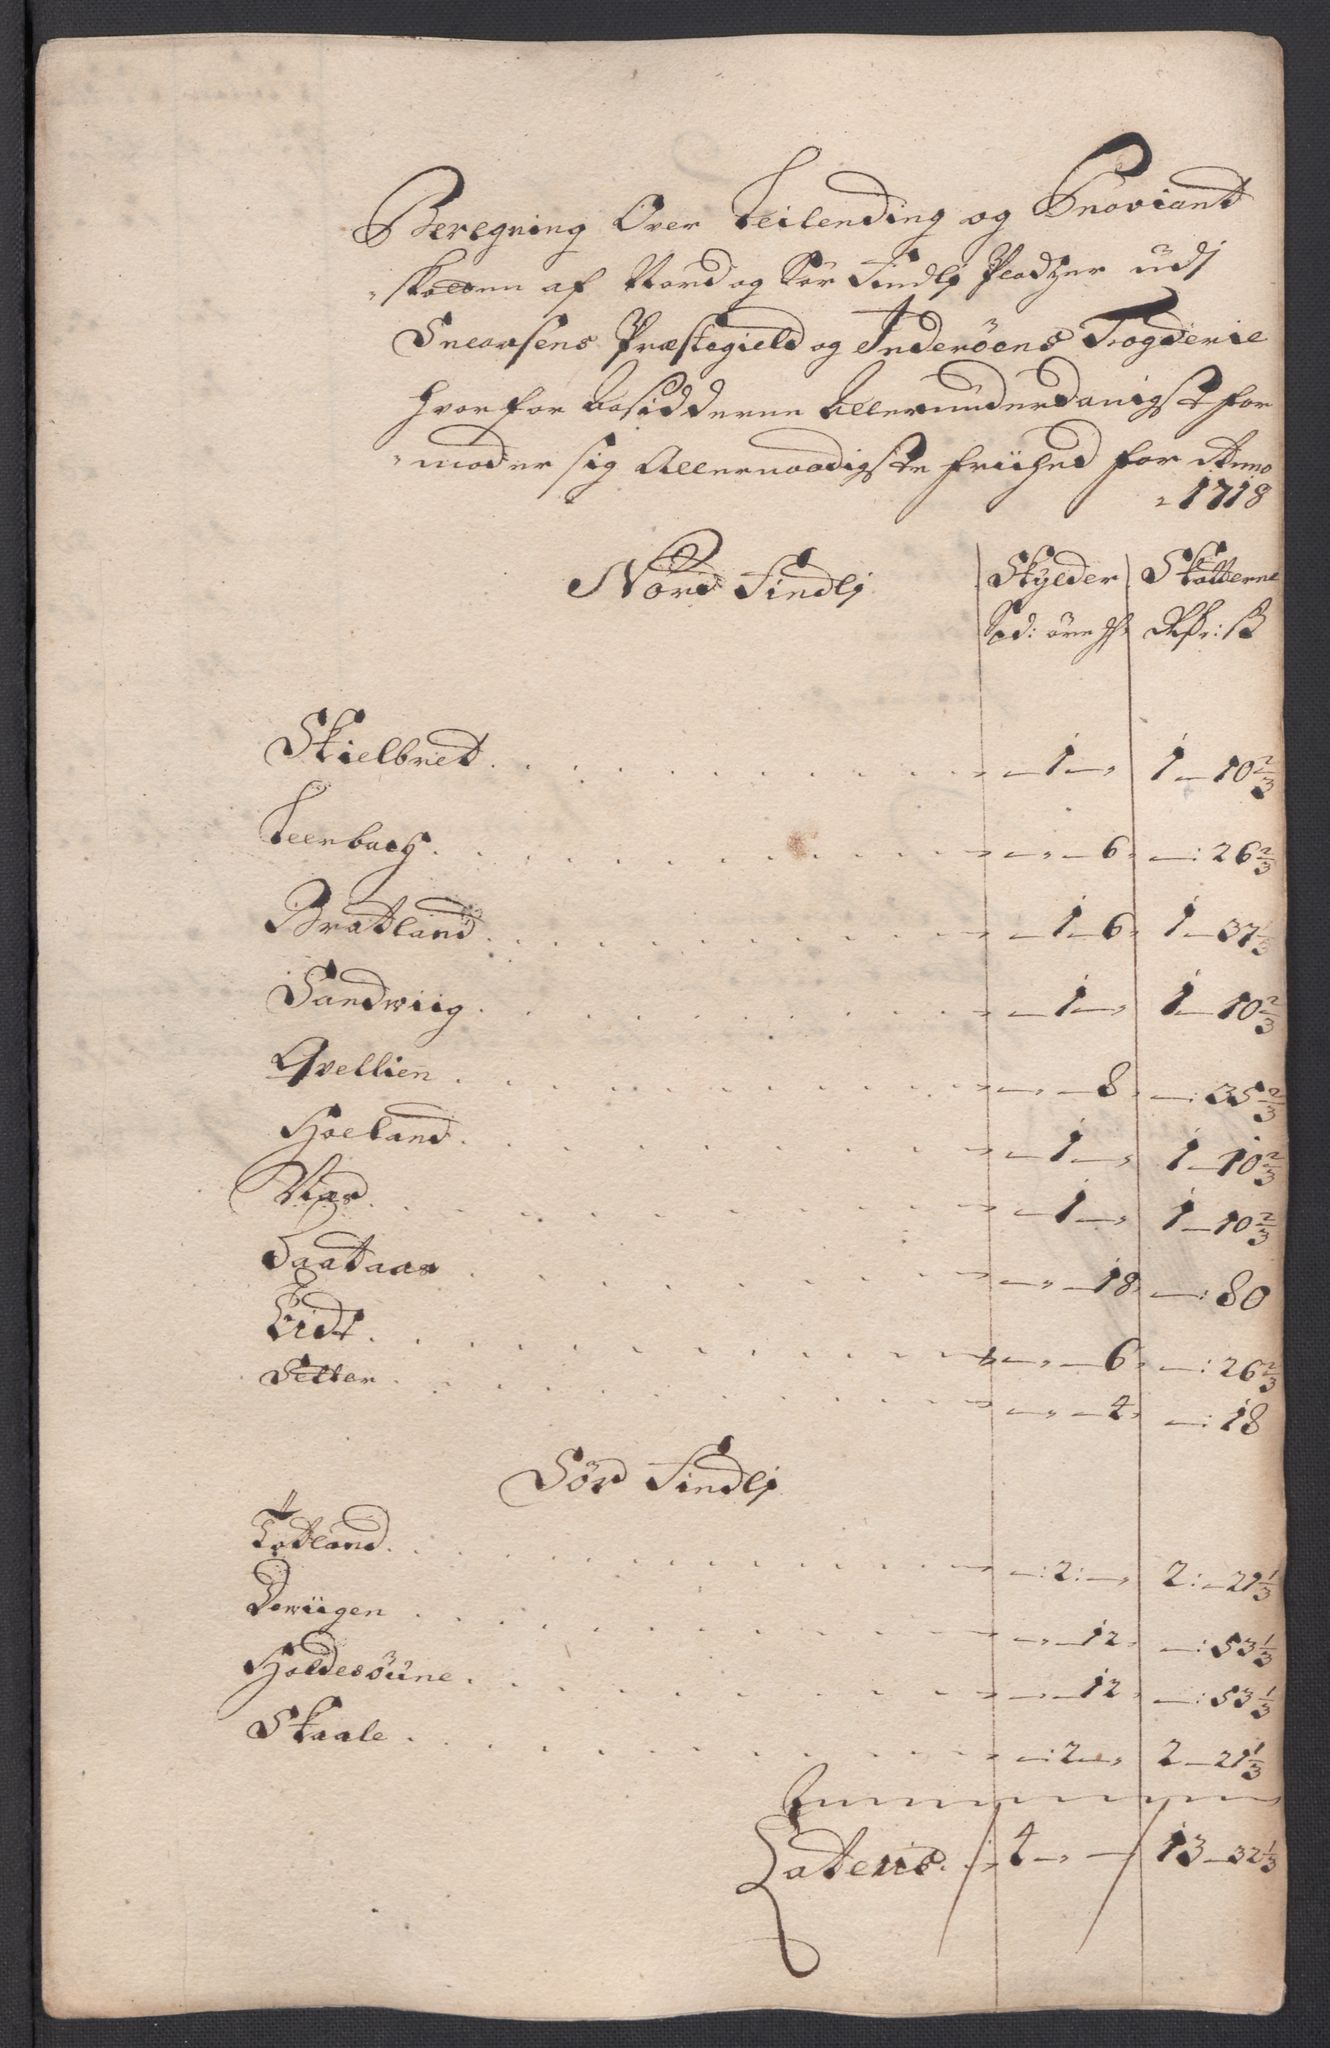 Beregning Over Leilending og Proviant
skatten af Nord og Sør Findlj Pladtzer udj
Snaasens Præstegield og Inderöens Fogderie
hvorfor besidderne Allerunderdanigst for
moder sig Allernaadigste friihed for Anno
1718
Nord Findlj Skylder Skatterne
Spd: öre Rdr: ß
Skielbred 1 1 10 2/3
Leerbach 6 26 2/3
Bratland 1 6 1 37 1/3
Sandwiig 1 1 10 2/3
Qvellien 8 35 2/3
Hoeland 1 1 10 2/3
Næs 1 1 10 2/3
Saataas 18 80
Eidt 6 26 2/3
Setter 4 18
Sör Findlj
Totland 2 2 21 1/3
Dewiigen 12 53 1/3
Holdesöüne 12 53 1/3
Skaale 2 2 21 1/3
Lateris 4 13 32 1/3